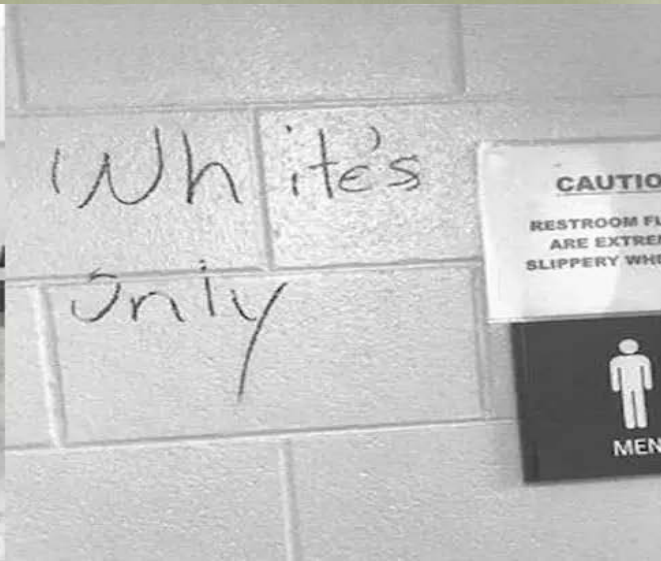 White's
only
CAUTIO
RESTROOM FL
ARE EXTREM
SLIPPERY WHE
MEN